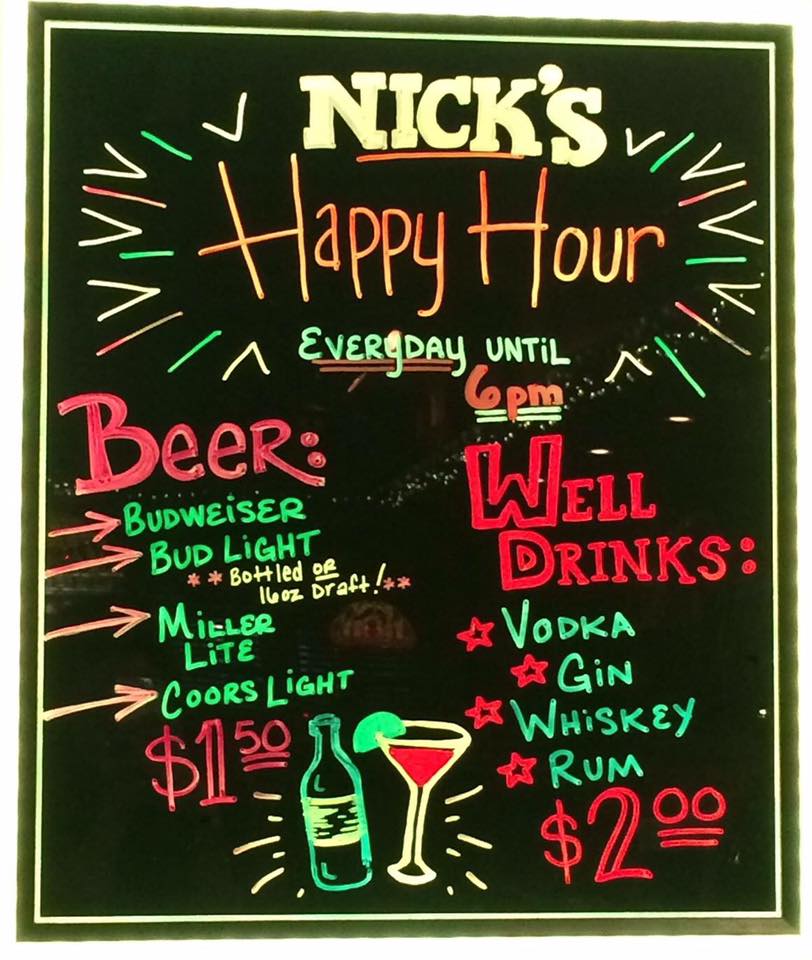 NICK'S
Happy Hour
EVERYDAY UNTIL
6pm
BEER:
BUDWEISER
BUD LIGHT
** Bottled or
16oz Draft! **
MILLER
LITE
COORS LIGHT
$1.50
WELL
DRINKS:
VODKA
GIN
WHISKEY
RUM
$2.00